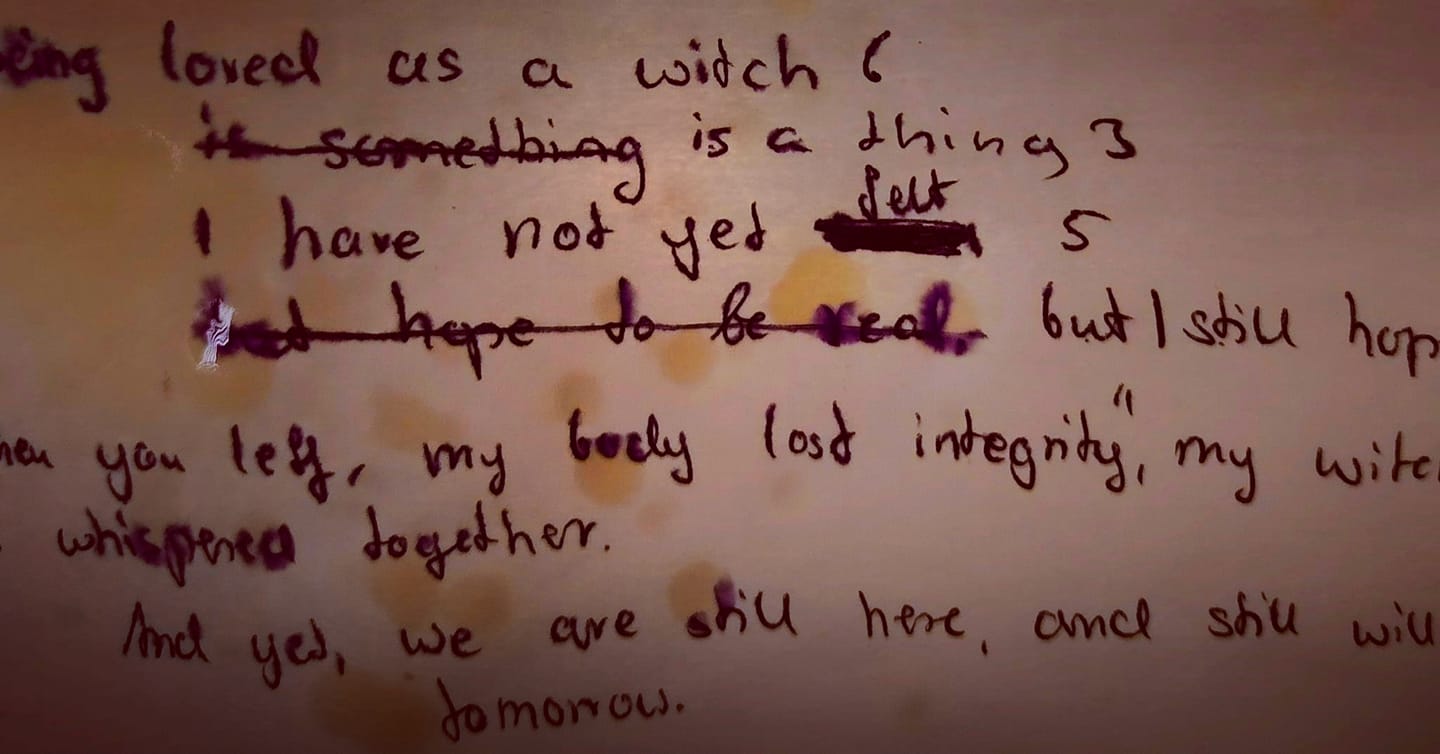 eing loved as a witch 6
is something is a thing 3
felt
I have not yet 5
hope to be real. but I still hop
hen you left, my body lost integrity", my witc
whispered together.
And yet, we are still here, and still will
tomorrow.